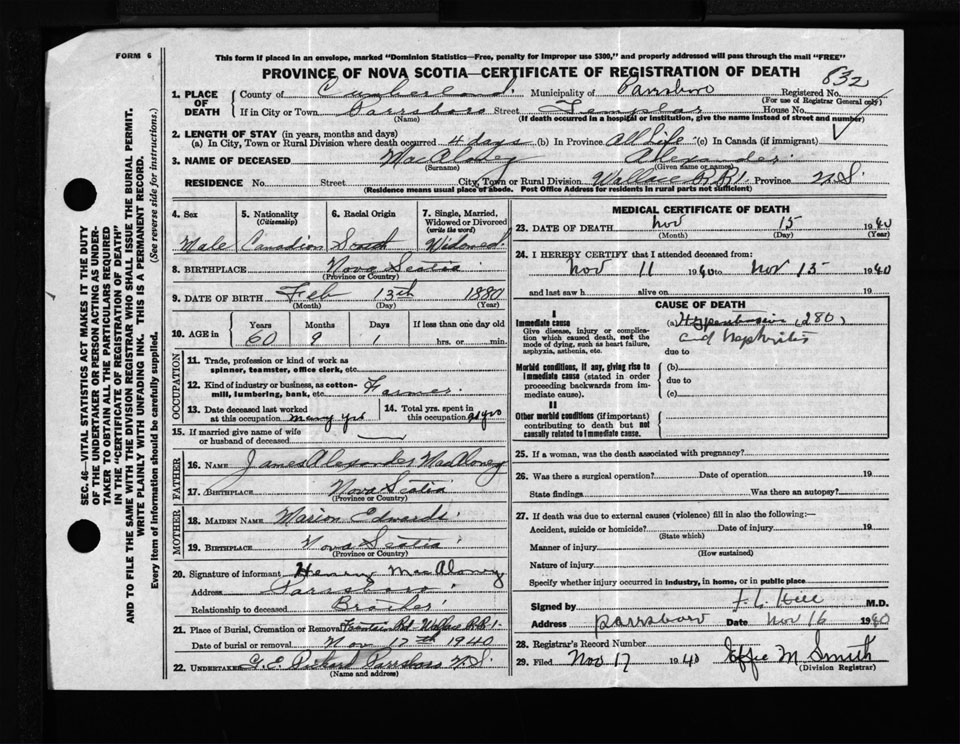 FORM 6
This form if placed in an envelope, marked "Dominion Statistics—Free, penalty for improper use $300," and properly addressed will pass through the mail "FREE"
PROVINCE OF NOVA SCOTIA—CERTIFICATE OF REGISTRATION OF DEATH
832
1. PLACE OF DEATH
County of Cumberland Municipality of Parrsboro Registered No.
(For use of Registrar General only)
If in City or Town Parrsboro Street House No.
(Name) (If death occurred in a hospital or institution, give the name instead of street and number)
2. LENGTH OF STAY (in years, months and days)
(a) In City, Town or Rural Division where death occurred 4 days (b) In Province All Life (c) In Canada (if immigrant)
3. NAME OF DECEASED MacAloney Alexander
(Surname) (Given name or names)
RESIDENCE No. Street City, Town or Rural Division Wallace RR1 Province N.S.
(Residence means usual place of abode. Post Office Address for residents in rural parts not sufficient)
4. Sex 5. Nationality (Citizenship) 6. Racial Origin 7. Single, Married, Widowed or Divorced (write the word)
Male Canadian Scotch Widowed
8. BIRTHPLACE Nova Scotia
(Province or Country)
9. DATE OF BIRTH Feb 13th 1880
(Month) (Day) (Year)
10. AGE in Years Months Days If less than one day old
60 9 1 hrs. or min.
OCCUPATION
11. Trade, profession or kind of work as spinner, teamster, office clerk, etc.
12. Kind of industry or business, as cotton-mill, lumbering, bank, etc. Farmer
13. Date deceased last worked at this occupation many yrs 14. Total yrs. spent in this occupation
15. If married give name of wife or husband of deceased
FATHER
16. NAME James Alexander MacAloney
17. BIRTHPLACE Nova Scotia
(Province or Country)
MOTHER
18. MAIDEN NAME Marion Edwards
19. BIRTHPLACE Nova Scotia
(Province or Country)
20. Signature of informant Henry MacAloney
Address Parrsboro
Relationship to deceased Brother
21. Place of Burial, Cremation or Removal Rd. Wallace RR1.
Date of burial or removal Nov 17th 1940
22. UNDERTAKER G. E. Parrsboro N.S.
(Name and address)
MEDICAL CERTIFICATE OF DEATH
23. DATE OF DEATH Nov 15 1940
(Month) (Day) (Year)
24. I HEREBY CERTIFY that I attended deceased from:
Nov 11 1940 to Nov 15 1940
and last saw h alive on 19
CAUSE OF DEATH
I
Immediate cause
Give disease, injury or complication which caused death, not the mode of dying, such as heart failure, asphyxia, asthenia, etc.
(a) Hypertension (280)
and Nephritis
due to
Morbid conditions, if any, giving rise to immediate cause (stated in order proceeding backwards from immediate cause).
(b)
due to
(c)
II
Other morbid conditions (if important) contributing to death but not causally related to immediate cause.
25. If a woman, was the death associated with pregnancy?
26. Was there a surgical operation? Date of operation 19
State findings Was there an autopsy?
27. If death was due to external causes (violence) fill in also the following:—
Accident, suicide or homicide? Date of injury 19
(State which)
Manner of injury
(How sustained)
Nature of injury
Specify whether injury occurred in industry, in home, or in public place
Signed by Hill M.D.
Address Parrsboro Date Nov 16 1940
28. Registrar's Record Number
29. Filed Nov 17 1940 Effie M Smith
(Division Registrar)
SEC. 46—VITAL STATISTICS ACT MAKES IT THE DUTY
OF THE UNDERTAKER OR PERSON ACTING AS UNDER-
TAKER TO OBTAIN ALL THE PARTICULARS REQUIRED
IN THE "CERTIFICATE OF REGISTRATION OF DEATH"
AND TO FILE THE SAME WITH THE DIVISION REGISTRAR WHO SHALL ISSUE THE BURIAL PERMIT.
WRITE PLAINLY WITH UNFADING INK. THIS IS A PERMANENT RECORD.
Every item of information should be carefully supplied. (See reverse side for instructions.)